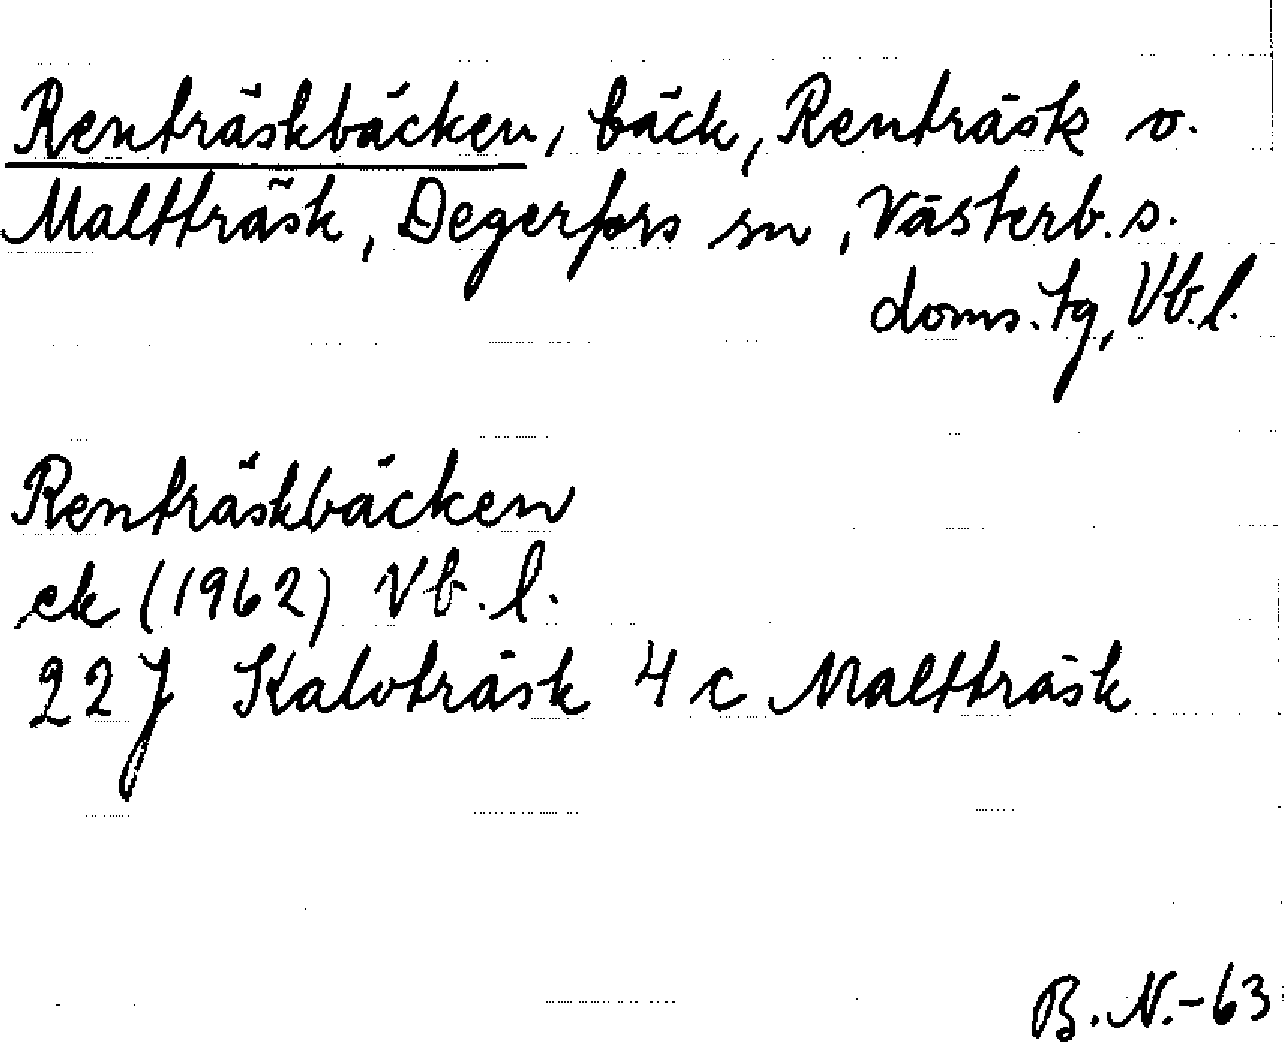 Renträskbäcken, bäck, Renträsk o.
Maltträsk, Degerfors sn, Västerb. s.
doms. tg, Vb. l.
Renträskbäcken
ek (1962) Vb. l.
22J Kalvträsk 4 c Maltträsk
B. N. - 63